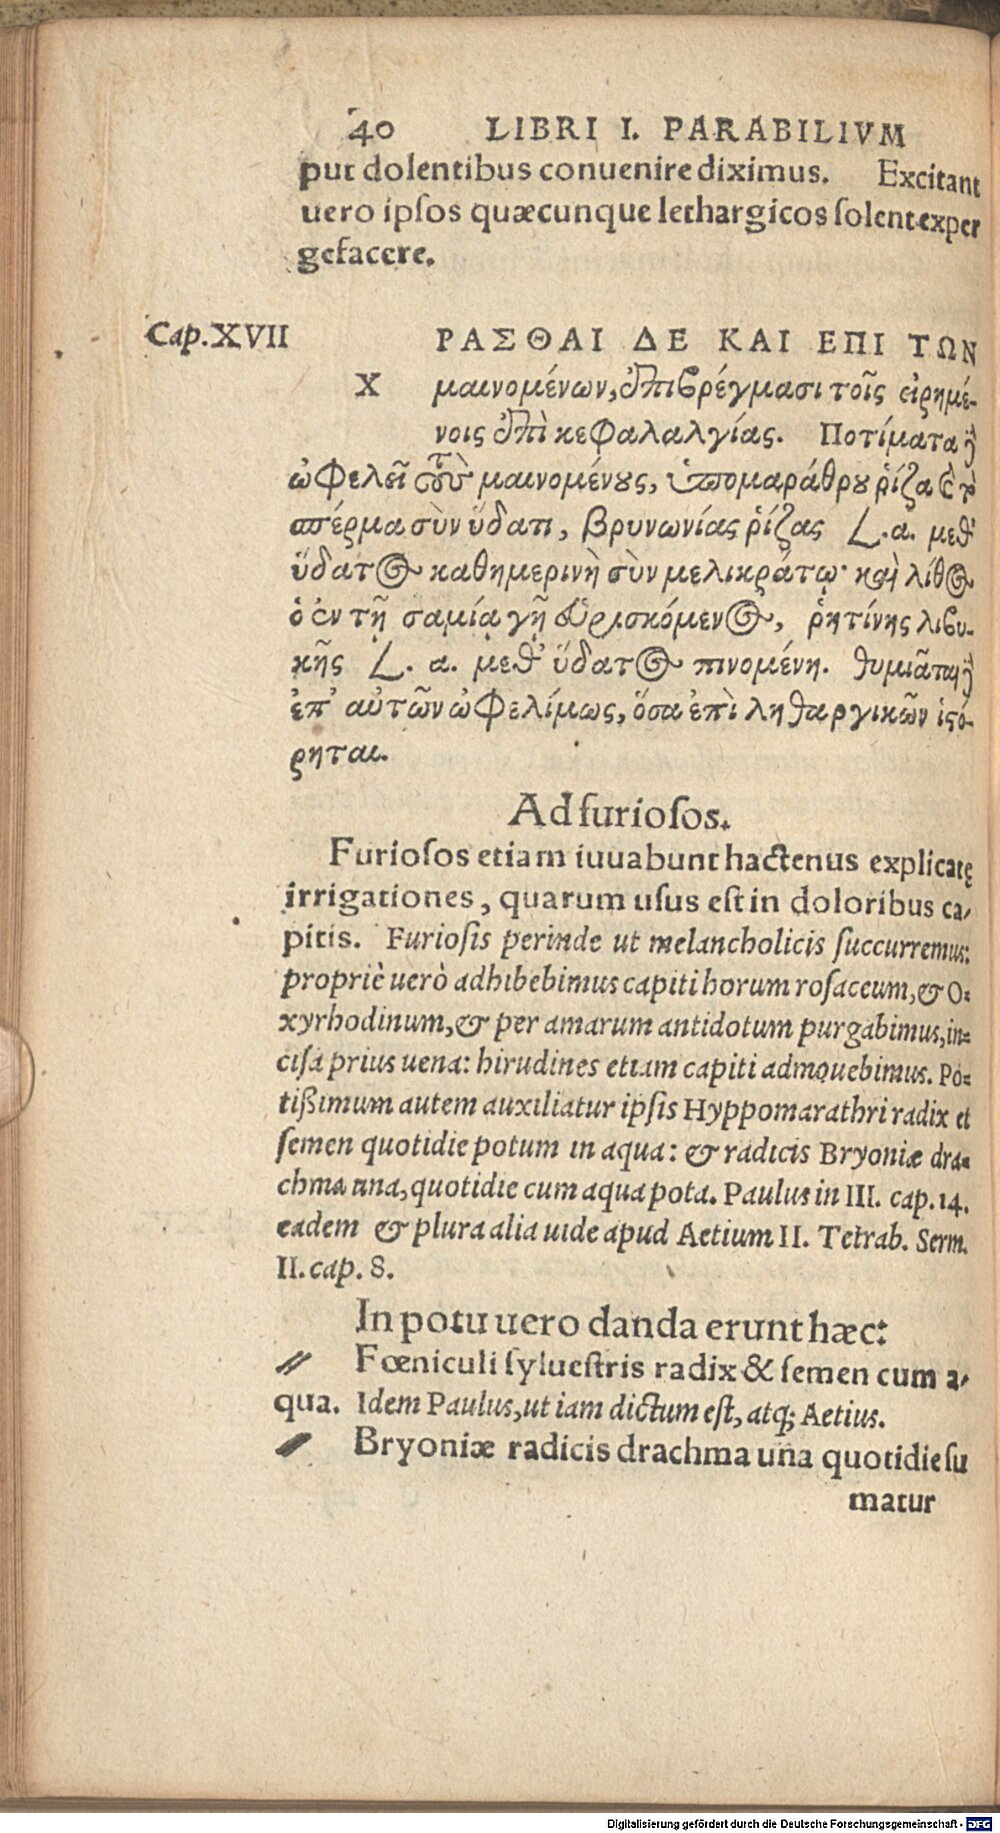 40 LIBRI I. PARABILIVM
put dolentibus conuenire diximus. Excitant
uero ipſos quæcunque lethargicos ſolent exper
gefacere.
Cap. XVII ΡΑΣΘΑΙ ΔΕ ΚΑΙ ΕΠΙ ΤΩΝ
Χ μαινομένων, ἐπιβρέγμασι τοῖς εἰρημέ-
νοις ἐπὶ κεφαλαλγίας. Ποτίματα ϳ
ὠφελεῖ τοὺς μαινομένους, ἱππομαράθρου ῥίζα καὶ τὸ
σπέρμα σὺν ὕδατι, βρυνωνίας ῥίζας 𐅻.α. μεθ'
ὕδατος καθημερινὴ σὺν μελικράτῳ· καὶ λίθος
ὁ ἐν τῇ σαμίᾳ γῇ εὑρισκόμενος, ῥητίνης λιβυ-
κῆς 𐅻. α. μεθ' ὕδατος πινομένη. θυμιᾶται
ἐπ' αὐτῶν ὠφελίμως, ὅσα ἐπὶ ληθαργικῶν ἱϛό-
ρηται.
Ad furioſos.
Furioſos etiam iuuabunt hactenus explicatę
irrigationes, quarum uſus eſt in doloribus ca-
pitis. Furioſis perinde ut melancholicis ſuccurremus:
propriè uerò adhibebimus capiti horum roſaceum, & O-
xyrhodinum, & per amarum antidotum purgabimus, in-
ciſa prius uena: hirudines etiam capiti admouebimus. Po-
tißimum autem auxiliatur ipſis Hyppomarathri radix et
ſemen quotidie potum in aqua: & radicis Bryoniæ dra-
chma una, quotidie cum aqua pota. Paulus in III. cap. 14.
eadem & plura alia uide apud Aetium II. Tetrab. Serm.
II. cap. 8.
In potu uero danda erunt hæc:
Fœniculi ſylueſtris radix & ſemen cum a-
qua. Idem Paulus, ut iam dictum eſt, atq; Aetius.
Bryoniæ radicis drachma una quotidie ſu
matur
Digitalisierung gefördert durch die Deutsche Forschungsgemeinschaft - DFG